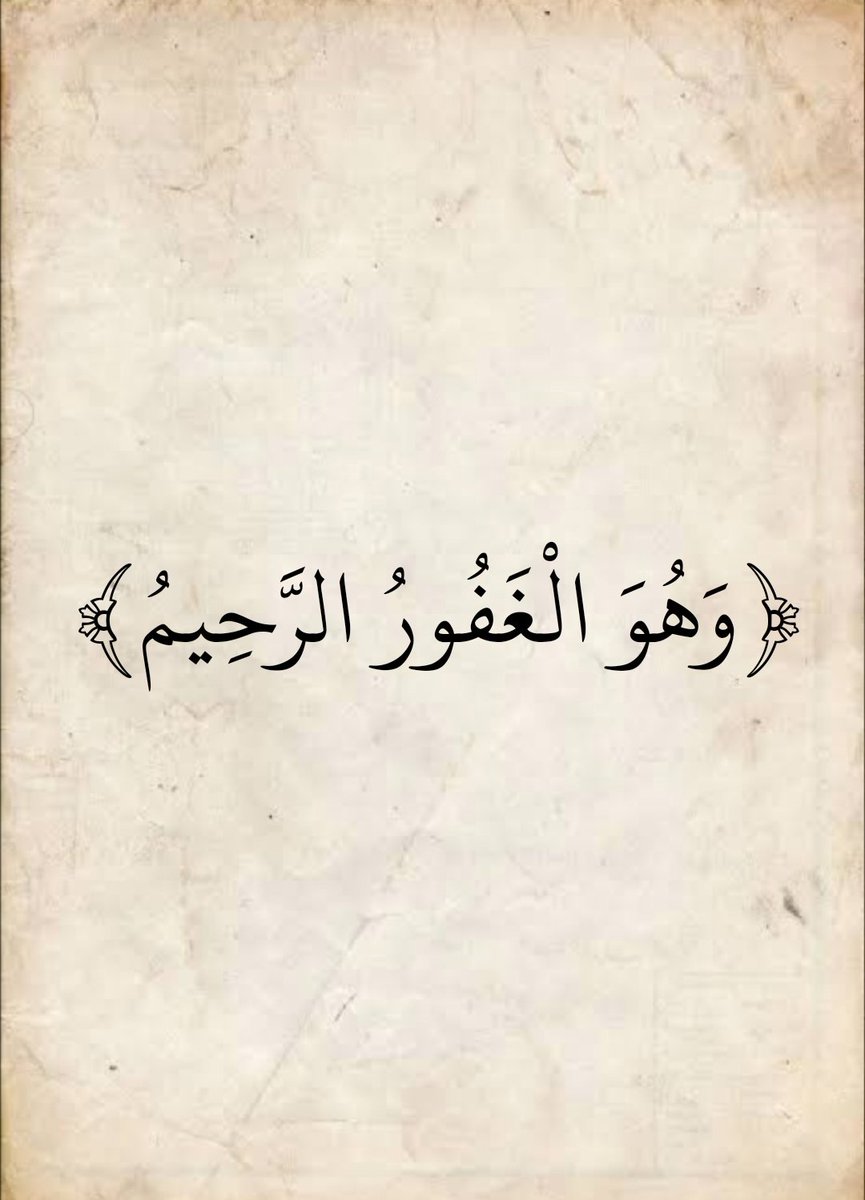 ﴿وَهُوَ الْغَفُورُ الرَّحِيمُ﴾